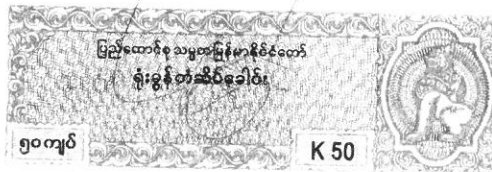 ပြည်ထောင်စုသမ္မတမြန်မာနိုင်ငံတော်
ရုံးခွန်တံဆိပ်ခေါင်း
၅၀ကျပ်
K 50